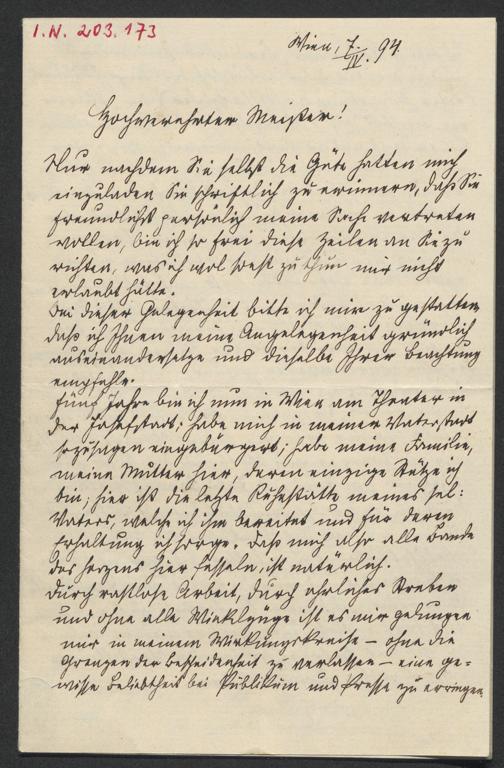 I.N. 203.173
Wien, 7./IV. 94.
Hochverehrter Meister!
Nur nachdem Sie selbst die Güte hatten mich
einzuladen Sie schriftlich zu erinnern, daß Sie
freundlichst persönlich meine Sache vertreten
wollen, bin ich so frei diese Zeilen an Sie zu
richten, was ich wol sonst zu thun mir nicht
erlaubt hätte.
Bei dieser Gelegenheit bitte ich mir zu gestatten
daß ich Ihnen meine Angelegenheit gründlich
auseinandersetze und dieselbe Ihrer Beachtung
empfehle.
Fünf Jahre bin ich nun in Wien am Theater in
der Josefstadt; habe mich in meiner Vaterstadt
sozusagen eingebürgert; habe meine Familie,
meine Mutter hier, deren einzige Stütze ich
bin; hier ist die letzte Ruhestätte meines sel:
Vaters, welche ich ihm bereitet und für deren
Erhaltung ich sorge. Daß mich also alle Bande
des Herzens hier fesseln, ist natürlich.
Durch rastlose Arbeit, durch ehrliches Streben
und ohne alle Winkelzüge ist es mir gelungen
mir in meinem Wirkungskreise – ohne die
Grenzen der Bescheidenheit zu verlassen – eine ge=
wisse Beliebtheit bei Publikum und Presse zu erringen.